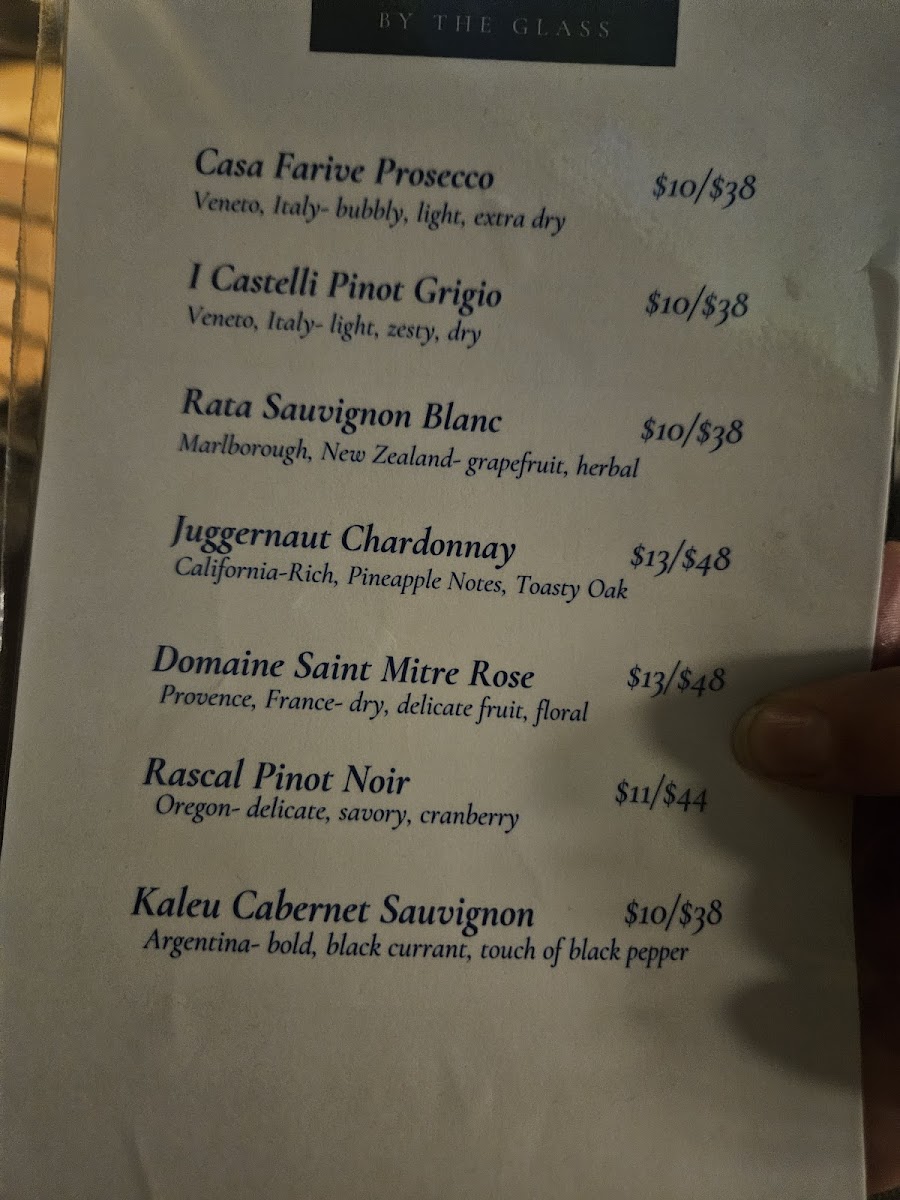 BY THE GLASS
Casa Farive Prosecco $10/$38
Veneto, Italy- bubbly, light, extra dry
I Castelli Pinot Grigio $10/$38
Veneto, Italy- light, zesty, dry
Rata Sauvignon Blanc $10/$38
Marlborough, New Zealand- grapefruit, herbal
Juggernaut Chardonnay $13/$48
California-Rich, Pineapple Notes, Toasty Oak
Domaine Saint Mitre Rose $13/$48
Provence, France- dry, delicate fruit, floral
Rascal Pinot Noir $11/$44
Oregon- delicate, savory, cranberry
Kaleu Cabernet Sauvignon $10/$38
Argentina- bold, black currant, touch of black pepper